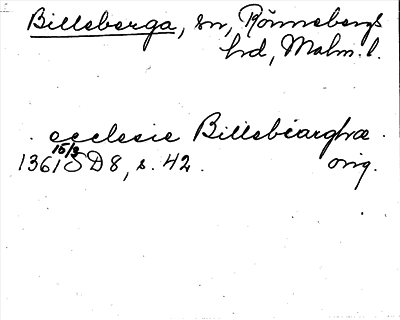 Billeberga, sn, Rönnebergs
hd, Malm. l.
ecclesie Billebiarghæ.
1361 15/3 SD 8, s. 42. orig.